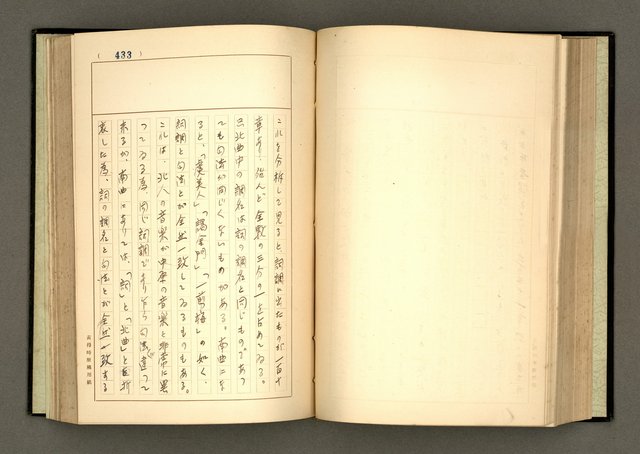 ( 433 )
これを分析して見ると、詞調に出たものが一百十
章あり、殆んど全数の三分の一を占めてゐる。
只北曲中の調名は詞の調名と同じものであつ
ても句法が同じくないものがある。南曲にな
ると、「虞美人」「謁金門」「一剪梅」の如く、
詞調と句法とが全然一致してゐるものもある。
これは、北人の音楽が中原の音楽と非常に異
つてゐる為、同じ詞調でありながら句法違つて
来るが、南曲にありては、「詞」と「北曲」とを折
衷した為、詞の調名と句法とが全然一致する
黃得時原稿用紙